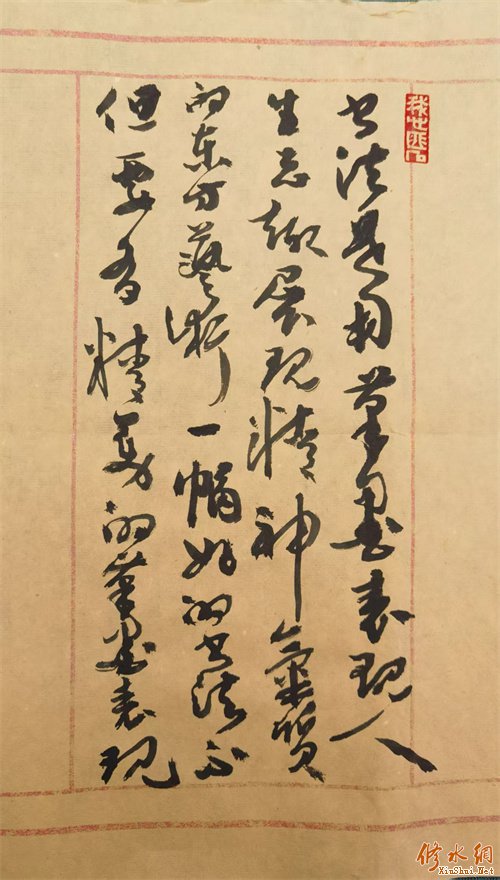 书法是用筆墨表现人
生志趣展现精神氣質
的东方藝術一幅好的书法不
但要有精美的筆墨表现
修水網
XiuShui.Net